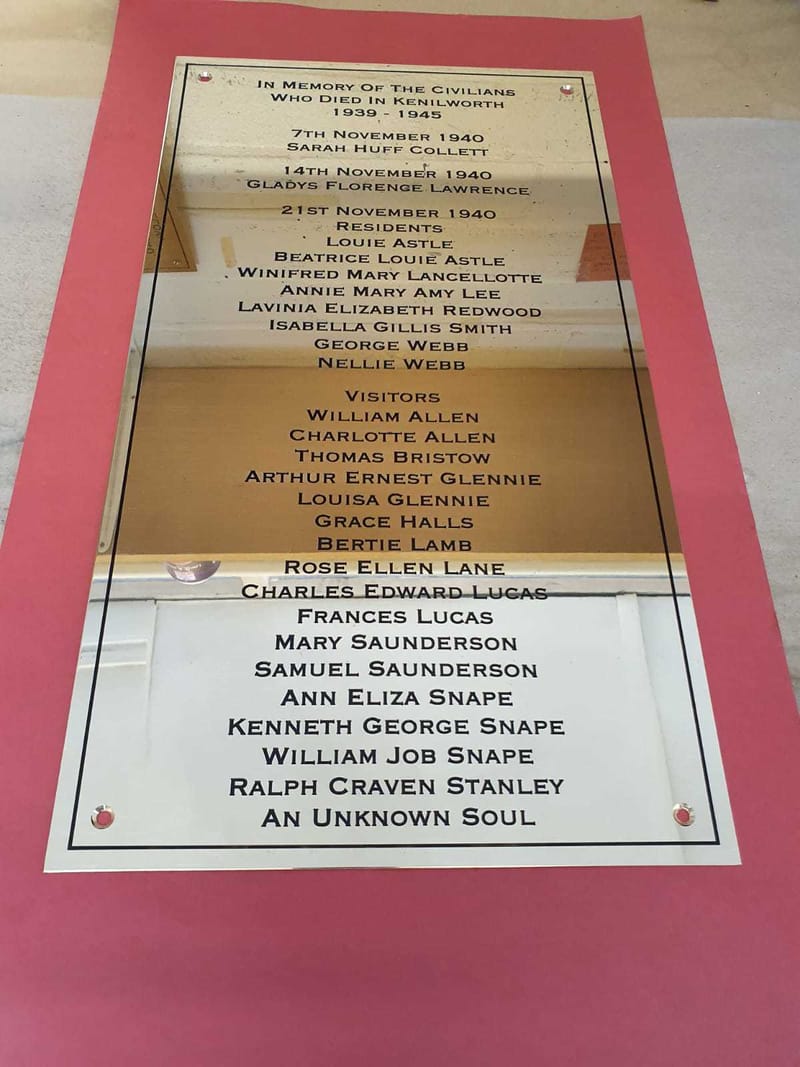 In Memory Of The Civilians
Who Died In Kenilworth
1939 - 1945
7th November 1940
Sarah Huff Collett
14th November 1940
Gladys Florence Lawrence
21st November 1940
Residents
Louie Astle
Beatrice Louie Astle
Winifred Mary Lancellotte
Annie Mary Amy Lee
Lavinia Elizabeth Redwood
Isabella Gillis Smith
George Webb
Nellie Webb
Visitors
William Allen
Charlotte Allen
Thomas Bristow
Arthur Ernest Glennie
Louisa Glennie
Grace Halls
Bertie Lamb
Rose Ellen Lane
Charles Edward Lucas
Frances Lucas
Mary Saunderson
Samuel Saunderson
Ann Eliza Snape
Kenneth George Snape
William Job Snape
Ralph Craven Stanley
An Unknown Soul